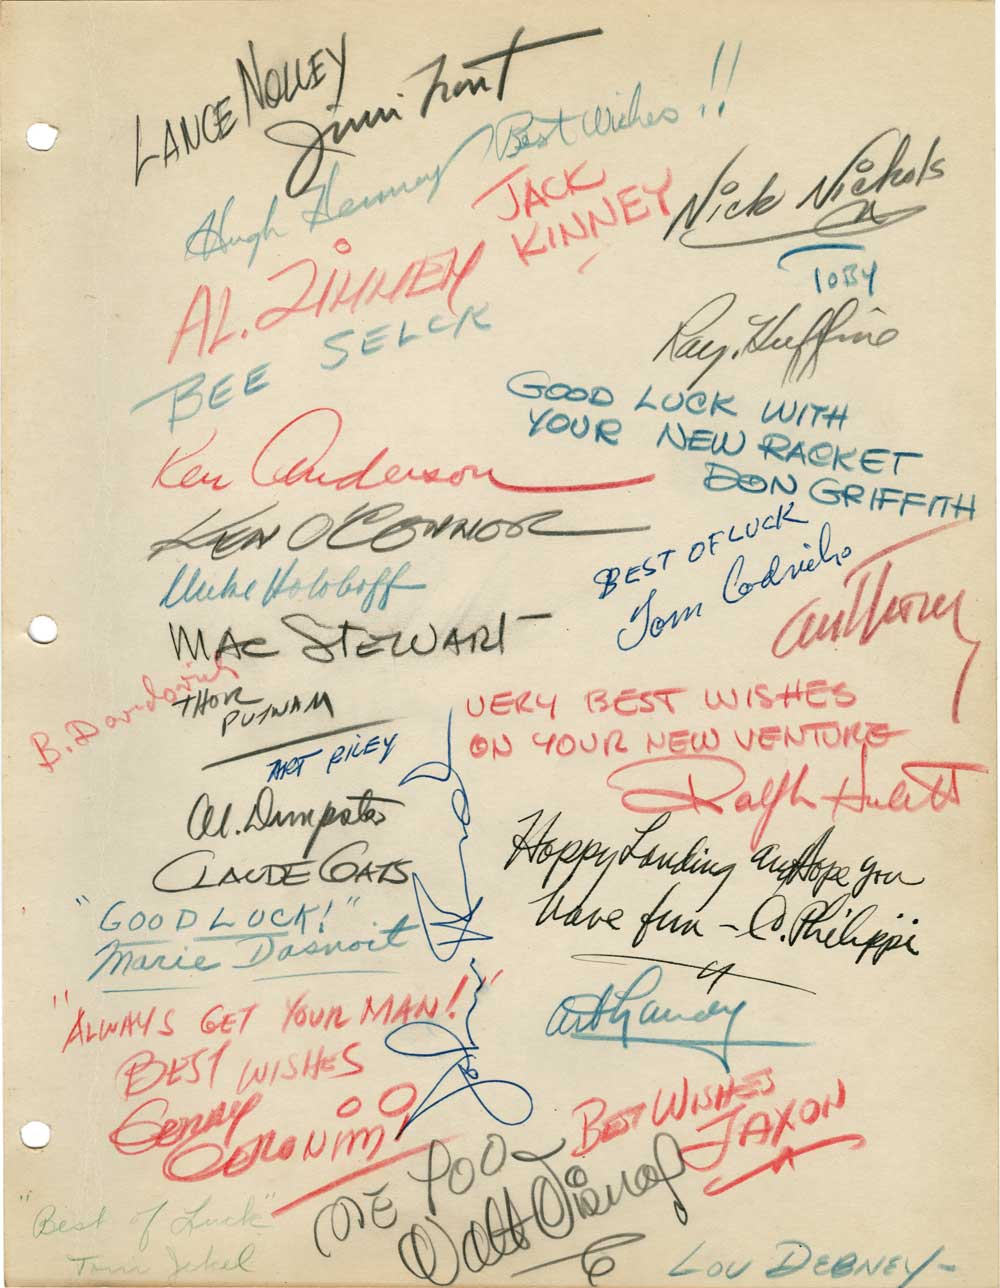 LANCE NOLLEY
Jimi Trout
Best Wishes!!
Hugh Hennesy
JACK
KINNEY
Nick Nichols
AL. ZINNEN
TOBY
BEE SELCK
Ray. Huffine
GOOD LUCK WITH
YOUR NEW RACKET
DON GRIFFITH
Ken Anderson
KEN O'CONNOR
BEST OF LUCK
Tom Codrick
Mike Holoboff
anthony
MAC STEWART
B. Davidovich
THOR
PUTNAM
VERY BEST WISHES
ON YOUR NEW VENTURE
Ralph Hulett
ART RILEY
Al. Dempster
CLAUDE COATS
Happy Landing and Hope you
have fun - C. Philippi
"GOOD LUCK!"
Marie Dasnoit
Art Landy
"ALWAYS GET YOUR MAN!"
BEST WISHES
GERRY
GERONIMI
BEST WISHES
JAXON
ME TOO
Walt Disney
"Best of Luck"
Tom Jekel
LOU DEBNEY-